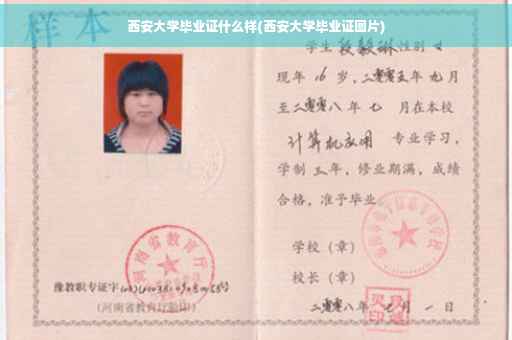 西安大学毕业证什么样(西安大学毕业证图片)
样本
学生 段毅琳 性别 女
现年 16 岁，二零零五年 九 月
至二零零八年 七 月在本校
计算机应用 专业学习，
学制 三 年，修业期满，成绩
合格，准予毕业
学校（章）
校长（章）
二零零八年 七 月 一 日
河南省教育厅
豫教职专证字
(河南省教育厅验印)